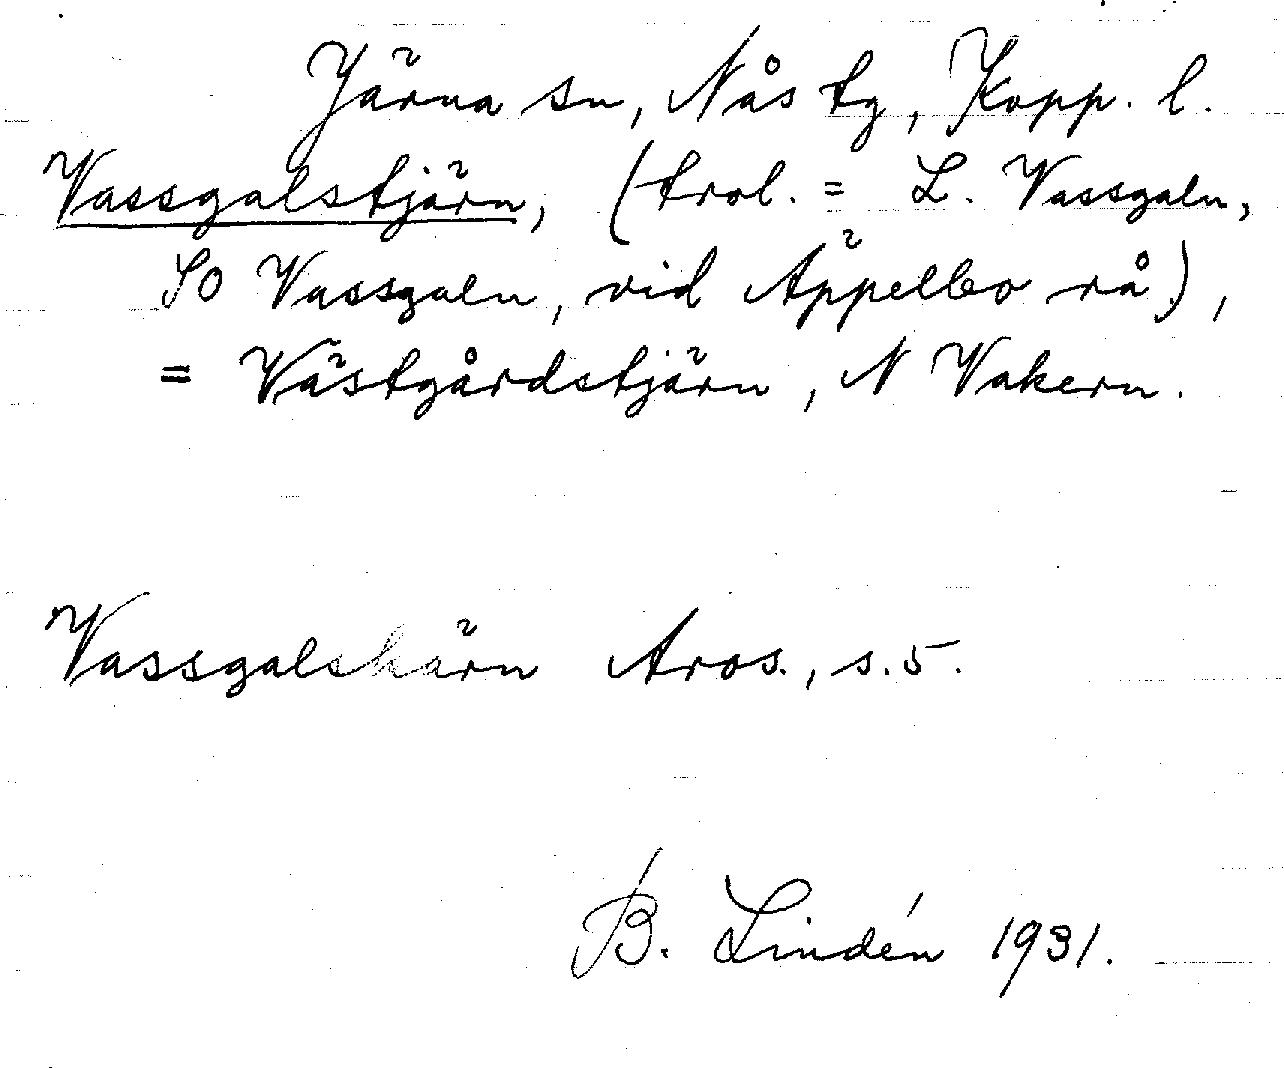 Järna sn, Nås tg, Kopp. l.
Vassgalstjärn, (trol. = L. Vassgaln,
SO Vassgaln, vid Äppelbo rå),
= Västgårdstjärn, N Vakern.
Vassgalskärn Aros., s. 5.
B. Lindén 1931.